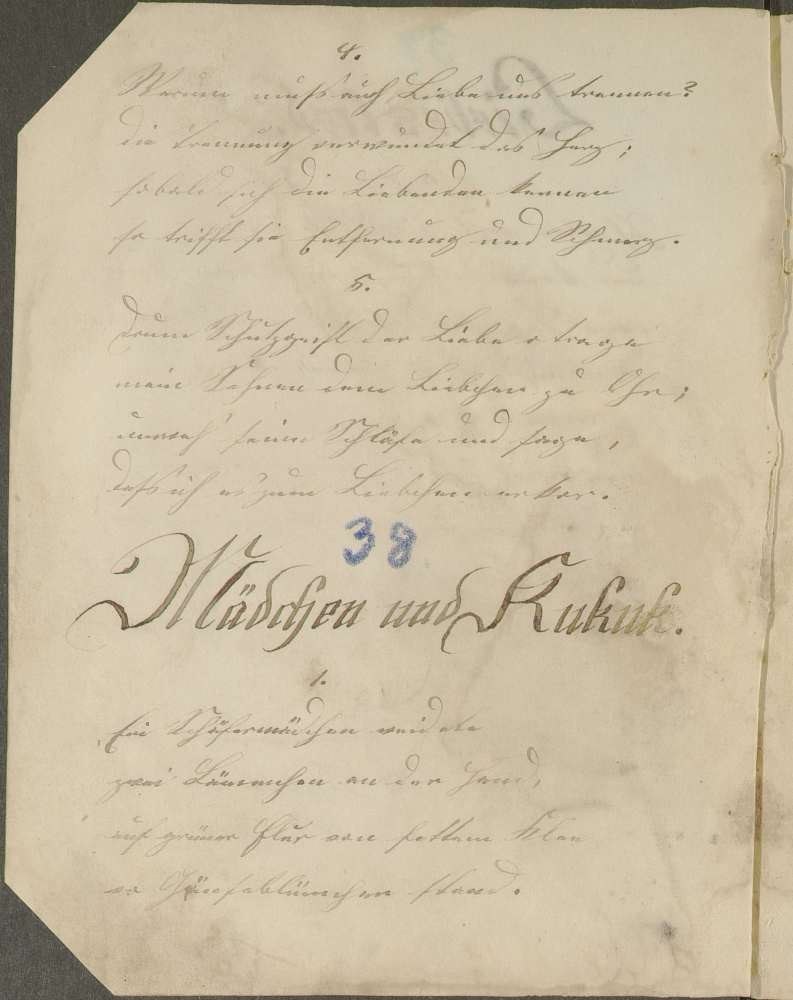 4.
Warum muß auch Liebe uns trennen?
die Trennung verwundet das Herz;
sobald sich die Liebenden kennen
so trifft sie Entfernung und Schmerz.
5.
Drum Schutzgeist der Liebe o trage
mein Sehnen dem Liebchen zu Ohr;
umweh' seine Schläfe und sage,
daß ich es zum Liebchen erkor.
38
Mädchen und Kukuk.
1.
Ein Schäfermädchen weidete
zwei Lämmchen an der Hand,
auf grüner Flur von fettem Klee
wo Gänseblümchen stand.